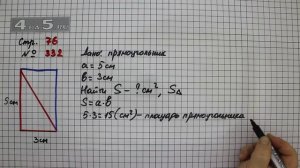 4 5
Стр. 76
№ 332
Дано: прямоугольник
a = 5см
b = 3см
Найти S - ? см², S△
S = a·b
5·3 = 15 (см²) - площадь прямоугольника
5см
3см